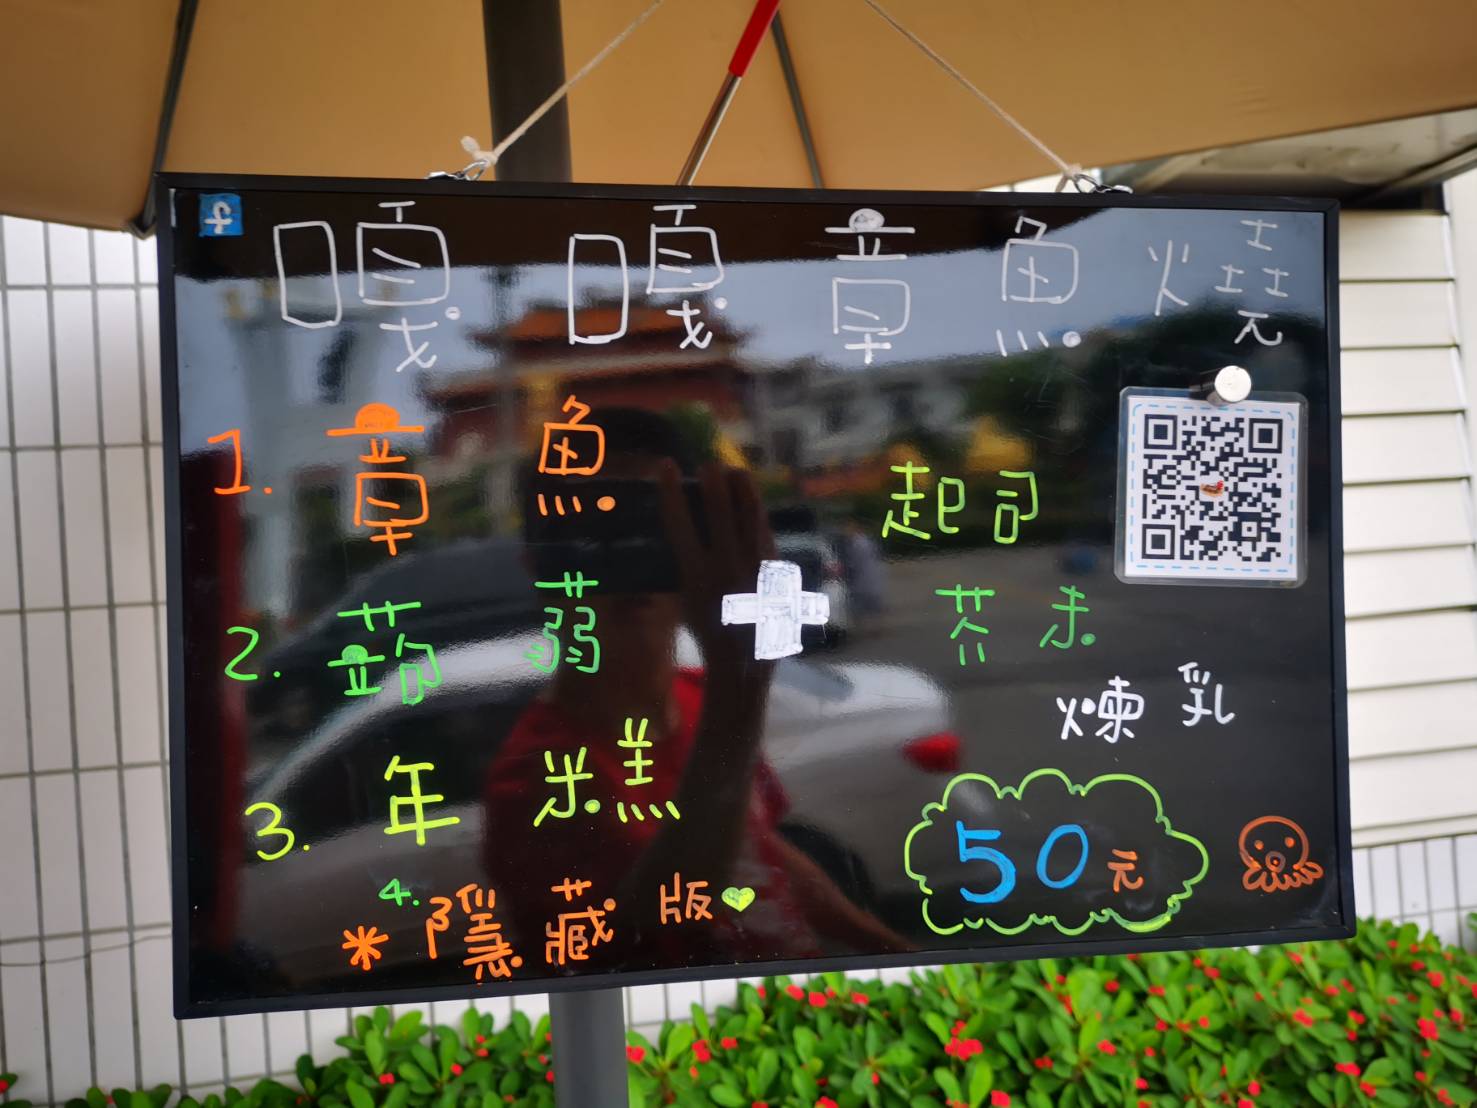 f
嘎嘎章魚燒
1. 章魚
起司
2. 蒟蒻
+
芥末
煉乳
3. 年糕
50元
4.
* 隱藏版